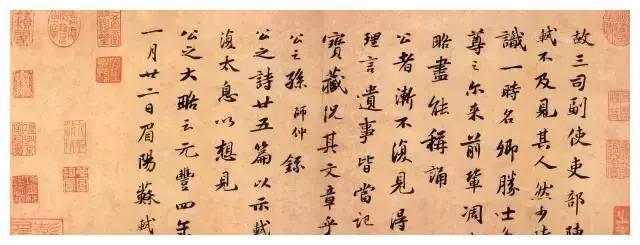 故三司副使吏部陳
軾不及見其人然少時
識一時名卿勝士多
尊之尔來前輩凋
略盡能稱誦
公者漸不復見得
理言遺事皆當記
寶藏況其文章乎
公之孫師仲錄
公之詩廿五篇以示軾
復太息以想見
公之大略云元豐四年
一月廿二日眉陽蘇軾